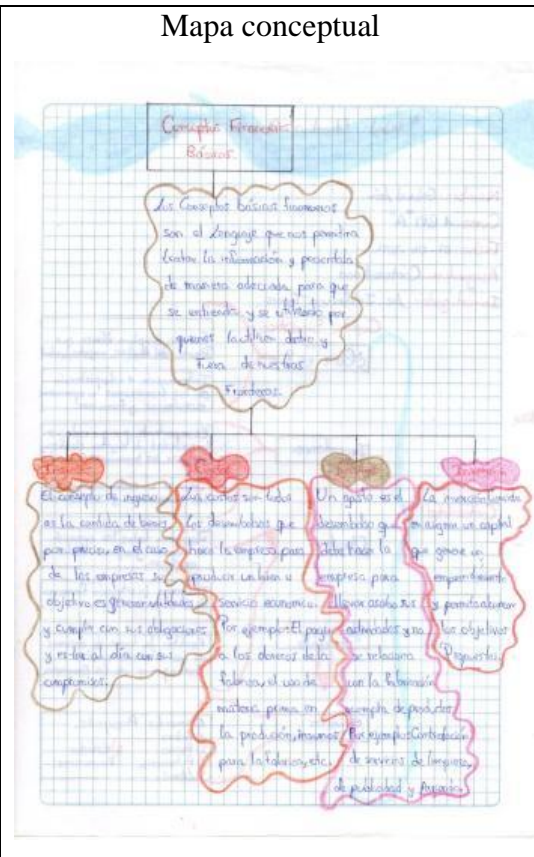 Mapa conceptual
Conceptos Financieros
Básicos.
Los Conceptos básicos financieros
son el Lenguaje que nos permitira
la información y
de manera adecuada para que
se entienda y se utilizado por
quienes la utilicen dentro y
Fuera de nuestras
Fronteras.
El concepto de ingreso
es la cantida de bienes
por precio, en el caso
de las empresas su
objetivo es generar utilidades
y cumplir con sus obligaciones
y estar al día con sus
compromisos.
Los costos son todos
los desembolsos que
hace la empresa para
producir un bien u
servicio economico.
Por ejemplo: El pago
a los obreros de la
fabrica, el uso de
materia prima en
la produción, insumos
para la fabrica, etc.
Un gasto es el
desembolso que
debe hacer la
empresa para
llevar acabo sus
actividades y no
se relaciona
con la fabricación
compra de productos
Por ejemplo: Contratación
de servicios de limpieza,
de publicidad y
La inversion
asignar un capital
que genere un
y permita alcanzar
los objetivos
Propuestos.